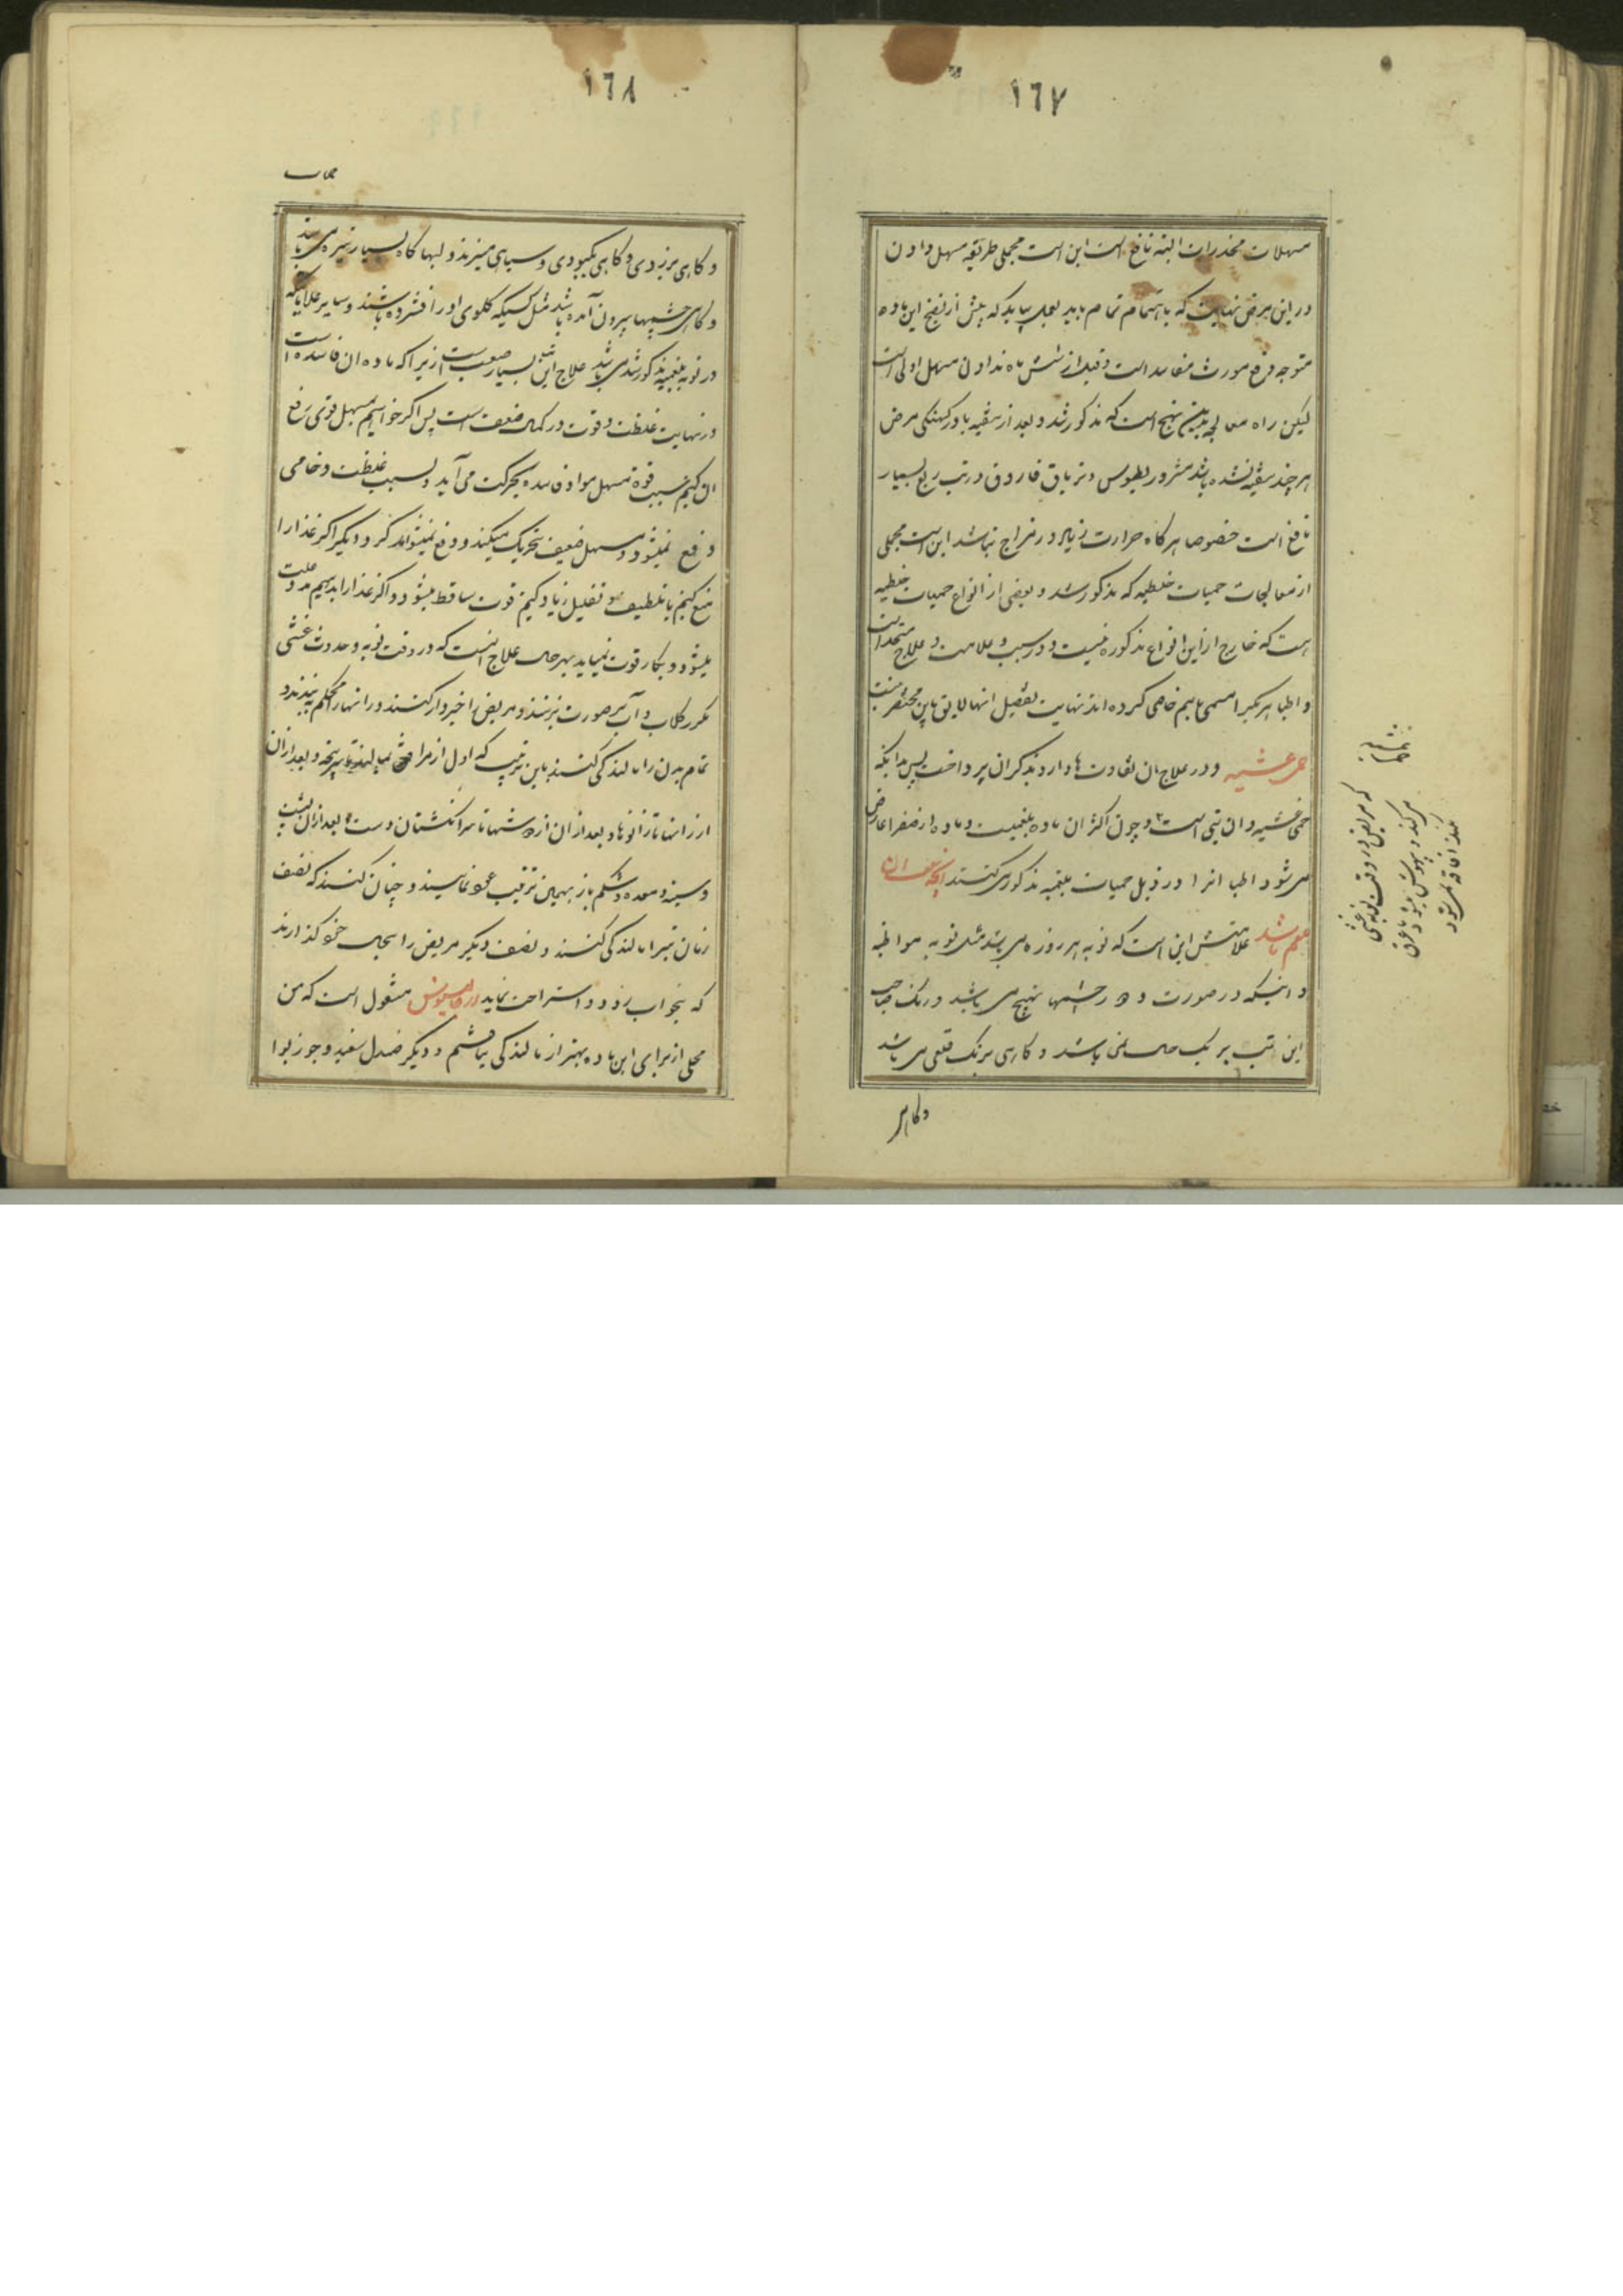 ١٦٧
مسهلات مخدرات البته نافع است این است مجملی طریقه مسهل دادن
در این مرض نهایت که باهتمام تمام باید بعمل بیاید که پیش از نضج این ماده
متوجه دفع مورث مفاسد است و قبل از شش ماه ندادن مسهل اولی است
لیکن راه معالجه بدین نهج است که مذکور شد و بعد از تنقیه یا در کهنکی مرض
هر چند تنقیه نشده باشد مثرودیطوس و تریاق فاروق در تب ربع بسیار
نافع است خصوصا هر کاه حرارت زیاد در مزاج نباشد این است مجملی
از معالجات حمیات خلطیه که مذکور شد و بعضی از انواع حمیات خلطیه
است که خارج از این انواع مذکوره نیست و در سبب و علامت و علاج متحد است
و اطبا هر یکیرا مسمی باسم خاصی کرده اند نهایت تفصیل انها لایق باین مختصر نیست
حمی غشیه و در علاج ان تفاوت ها دارد بذکر ان پرداخت پس بدانکه
حمی غشیه و ان تبی است و چون اکثر ان ماده بلغمیست و ماده از صفرا عارض
می شود اطبا انرا در ذیل حمیات بلغمیه مذکور می کنند انچه سبب ان
بلغم باشد علامتش این است که نوبه هر روزه می باشد مثل نوبه مواظبه
و اینکه در صورت و در چشمها تهیج می باشد و رنک صاحب
این تب بر یک حال نمی باشد و کاهی برنک قلعی می باشد
و کاهی
غشیه
حمی
که مریض در وقت نوبه غشی
می کند و بیهوش میشود با عرق
بعد افاقه می شود
١٦٨
و کاهی بزردی و کاهی بکبودی و سیاهی میزند و لبها کاه بسیار تیره می باشد
و کاهی چشمها بیرون آمده باشد مثل کسیکه کلوی او را فشرده باشند و سایر علاماتیکه
در نوبه بلغمیه مذکور شد می باشد علاج این تب بسیار صعب است زیرا که ماده ان فاسد است
در نهایت غلظت و قوت در کمال ضعف است پس اکر خواهیم بمسهل قوی رفع
ان کنیم بسبب قوة مسهل مواد فاسده بحرکت می آید و بسبب غلظت و خامی
دفع نمیشود و مسهل ضعیف تحریک میکند و دفع نمیتواند کرد و دیکر اکر غذا را
منع کنیم یا تلطیف و تقلیل زیاد کنیم قوت ساقط میشود و اکر غذا را بدهیم مدد علت
میشود و بکار قوت نمیاید بهر حال علاج انست که در وقت نوبه و حدوث غشی
مکرر کلاب و آب بر صورت بزنند و مریض را خبردار کنند و رانها را محکم ببندند و
تمام بدن را مالندکی کنند باین ترتیب که اول از مرافق بمالند تا سر پنجه و بعد از ان
از رانها تا زانوها و بعد از ان از دوشها تا سر انکشتان دست و بعد از ان پشت
و سینه و معده و شکم باز بهمین ترتیب عود نمایند و چنان کنند که نصف
زمان تب را مالندکی کنند و نصف دیکر مریض را بحال خود کذارند
که بخواب رود و استراحت نماید از جالینوس منقول است که من
محلی از برای این ماده بهتر از مالندکی نیافتم و دیکر صندل سفید و جوز بوا